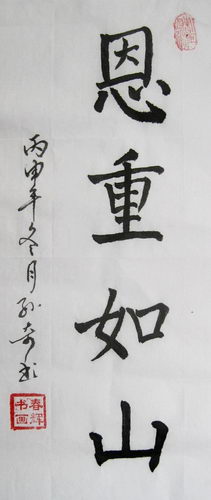 恩重如山
丙申年冬月孙奇书
春辉书画